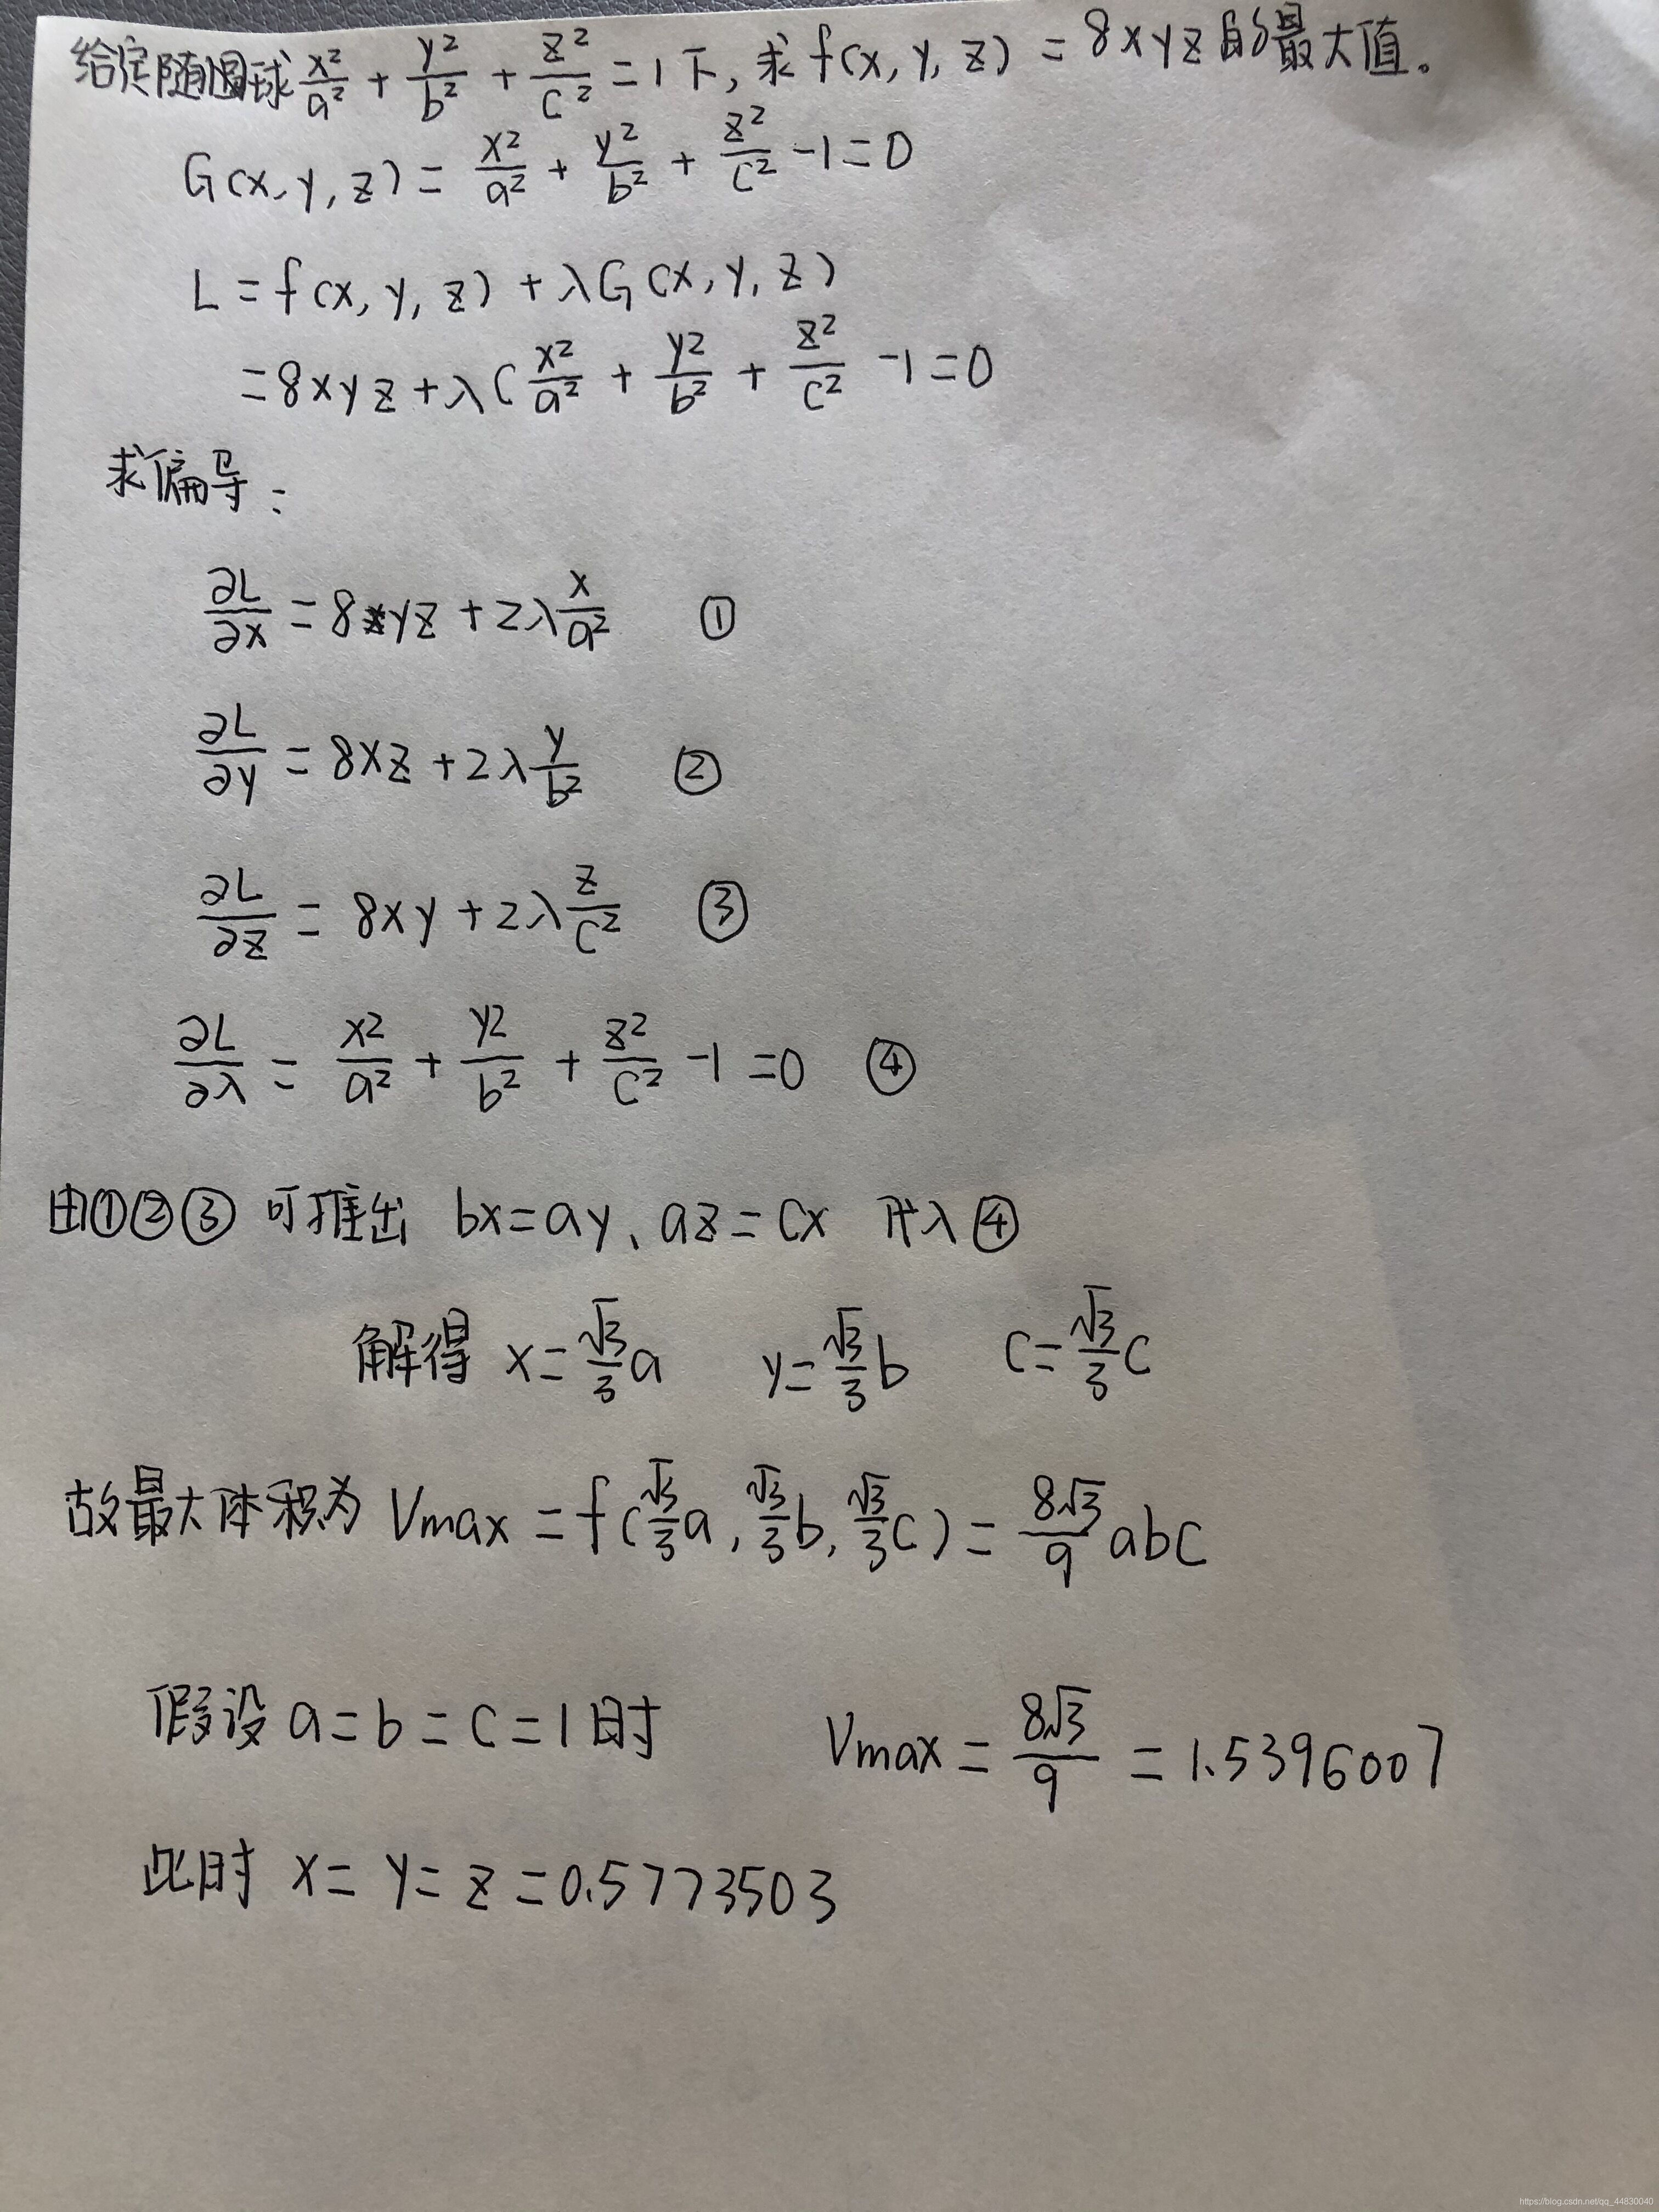 给定随圆球 x²/a² + y²/b² + z²/c² = 1 下, 求 f(x, y, z) = 8xyz 的最大值。
G(x, y, z) = x²/a² + y²/b² + z²/c² -1 = 0
L = f(x, y, z) + λG(x, y, z)
= 8xyz + λ( x²/a² + y²/b² + z²/c² -1 = 0
求偏导:
∂L/∂x = 8yz + 2λ x/a² ①
∂L/∂y = 8xz + 2λ y/b² ②
∂L/∂z = 8xy + 2λ z/c² ③
∂L/∂λ = x²/a² + y²/b² + z²/c² -1 = 0 ④
由①②③ 可推出 bx = ay、az = cx 入④
解得 x = √3/3 a y = √3/3 b c = √3/3 c
故最大体积为 Vmax = f(√3/3 a, √3/3 b, √3/3 c) = 8√3/9 abc
假设 a = b = c = 1 时 Vmax = 8√3/9 = 1.5396007
此时 x = y = z = 0.5773503
https://blog.csdn.net/qq_44830040